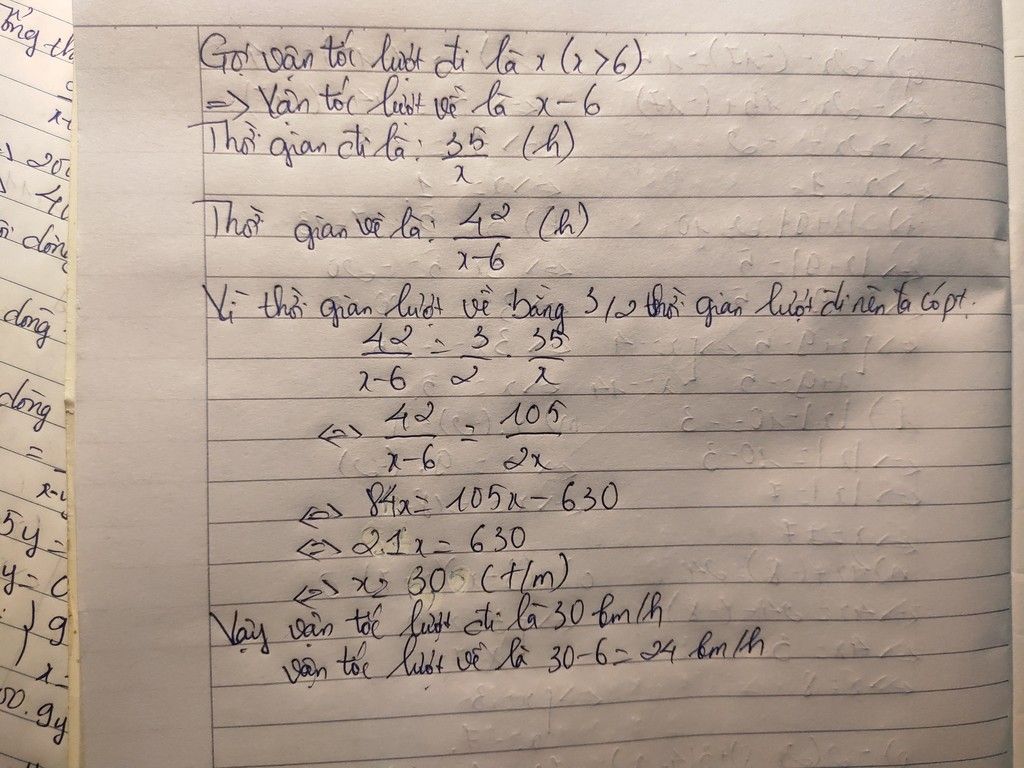 ống th
x-
=> 200
40
dòng
dòng
dòng
=
x-y
5y=
y= 0
g
x=
50.9y
Gọi vận tốc lượt đi là x (x>6)
=> Vận tốc lượt về là x-6
Thời gian đi là: 35/x (h)
Thời gian về là: 42/x-6 (h)
Vì thời gian lượt về bằng 3/2 thời gian lượt đi nên ta có pt.
42/x-6 = 3/2 . 35/x
<=> 42/x-6 = 105/2x
<=> 84x= 105x-630
<=> 21x= 630
<=> x= 30 (t/m)
Vậy vận tốc lượt đi là 30 km/h
vận tốc lượt về là 30-6=24 km/h